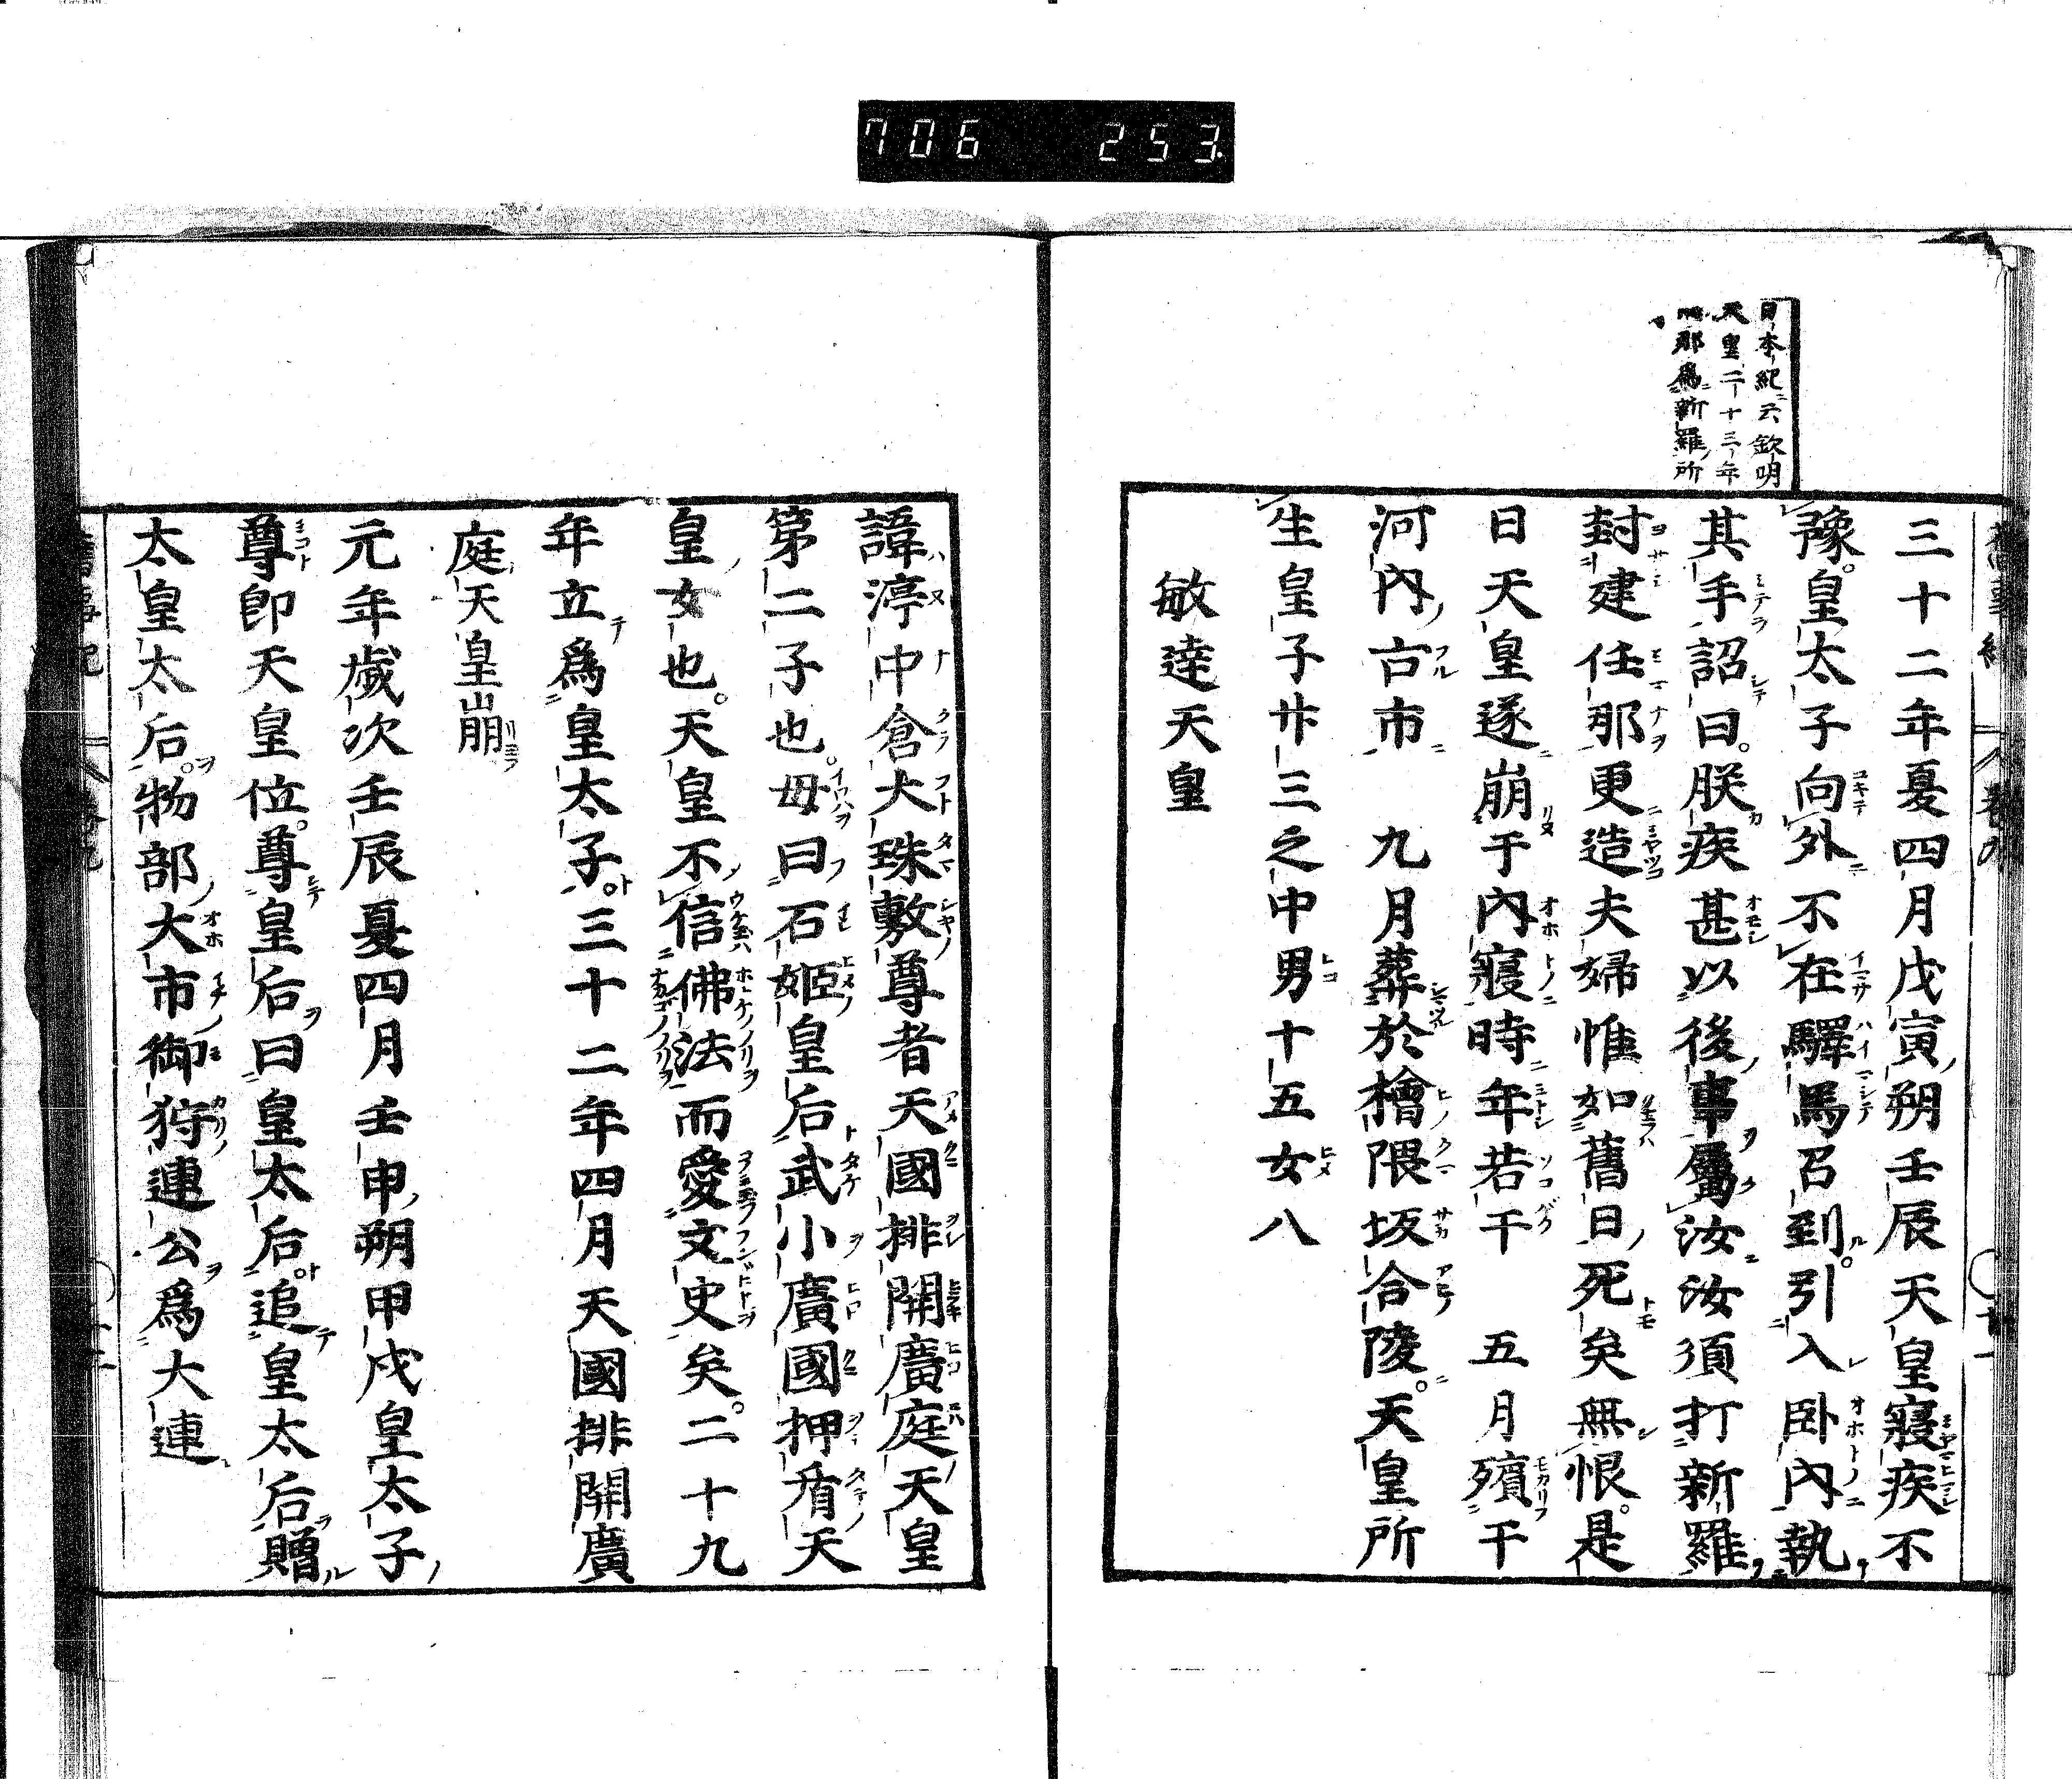 706 253.
日本紀云欽明
天皇二十三年
任那爲新羅所
三十二年夏四月戊寅朔壬辰天皇寢疾不
豫。皇太子向外不在驛馬召到。引入卧內執
其手詔曰。朕疾甚以後事屬汝汝須打新羅
封建任那更造夫婦惟如舊日死矣無恨。是
日天皇遂崩于內寢時年若干 五月殯于
河內古市 九月葬於檜隈坂合陵。天皇所
生皇子廾三之中男十五女八
敏達天皇
諱渟中倉太珠敷尊者天國排開廣庭天皇
第二子也。母曰石姬皇后武小廣國押盾天
皇女也。天皇不信佛法而愛文史矣。二十九
年立爲皇太子。三十二年四月天國排開廣
庭天皇崩
元年歲次壬辰夏四月壬申朔甲戌皇太子
尊即天皇位。尊皇后曰皇太后。追皇太后贈
太皇太后。物部大市御狩連公爲大連